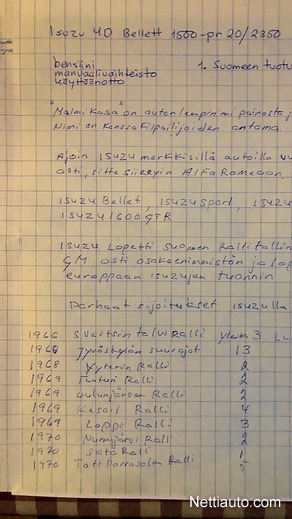 Isuzu 4D Bellett 1500-pr 20/2350
bensiini
manuaalivaihteisto
käyttöönotto
1. Suomeen tuotu
"Malmikasa" on auton lempinimi painosta
Nimi on kanssakilpailijoiden antama.
Ajoin Isuzu merkkisillä autoilla vu
asti, sitte siirryin Alfa Romeoon,
Isuzu Bellet, Isuzu Sport, Isuzu
Isuzu 1600 GTR
Isuzu lopetti Suomen Ralli tallin
GM osti osakeenmistön ja lop
Eurooppaan Isuzujen tuonnin
Parhaat sijoitukset Isuzulla
1966 Sveitsin talvi Ralli yleis. 3
1968 Jyväskylän suurajot 13
1968 Yyterin Ralli 2
1969 Tunturi Ralli 2
1969 Oulunjärven Ralli 2
1969 Kesoil Ralli 4
1969 Loppi Ralli 3
1970 Nurmijärvi Ralli 2
1970 Sata Ralli 1
1970 Ralli
Nettiauto.com